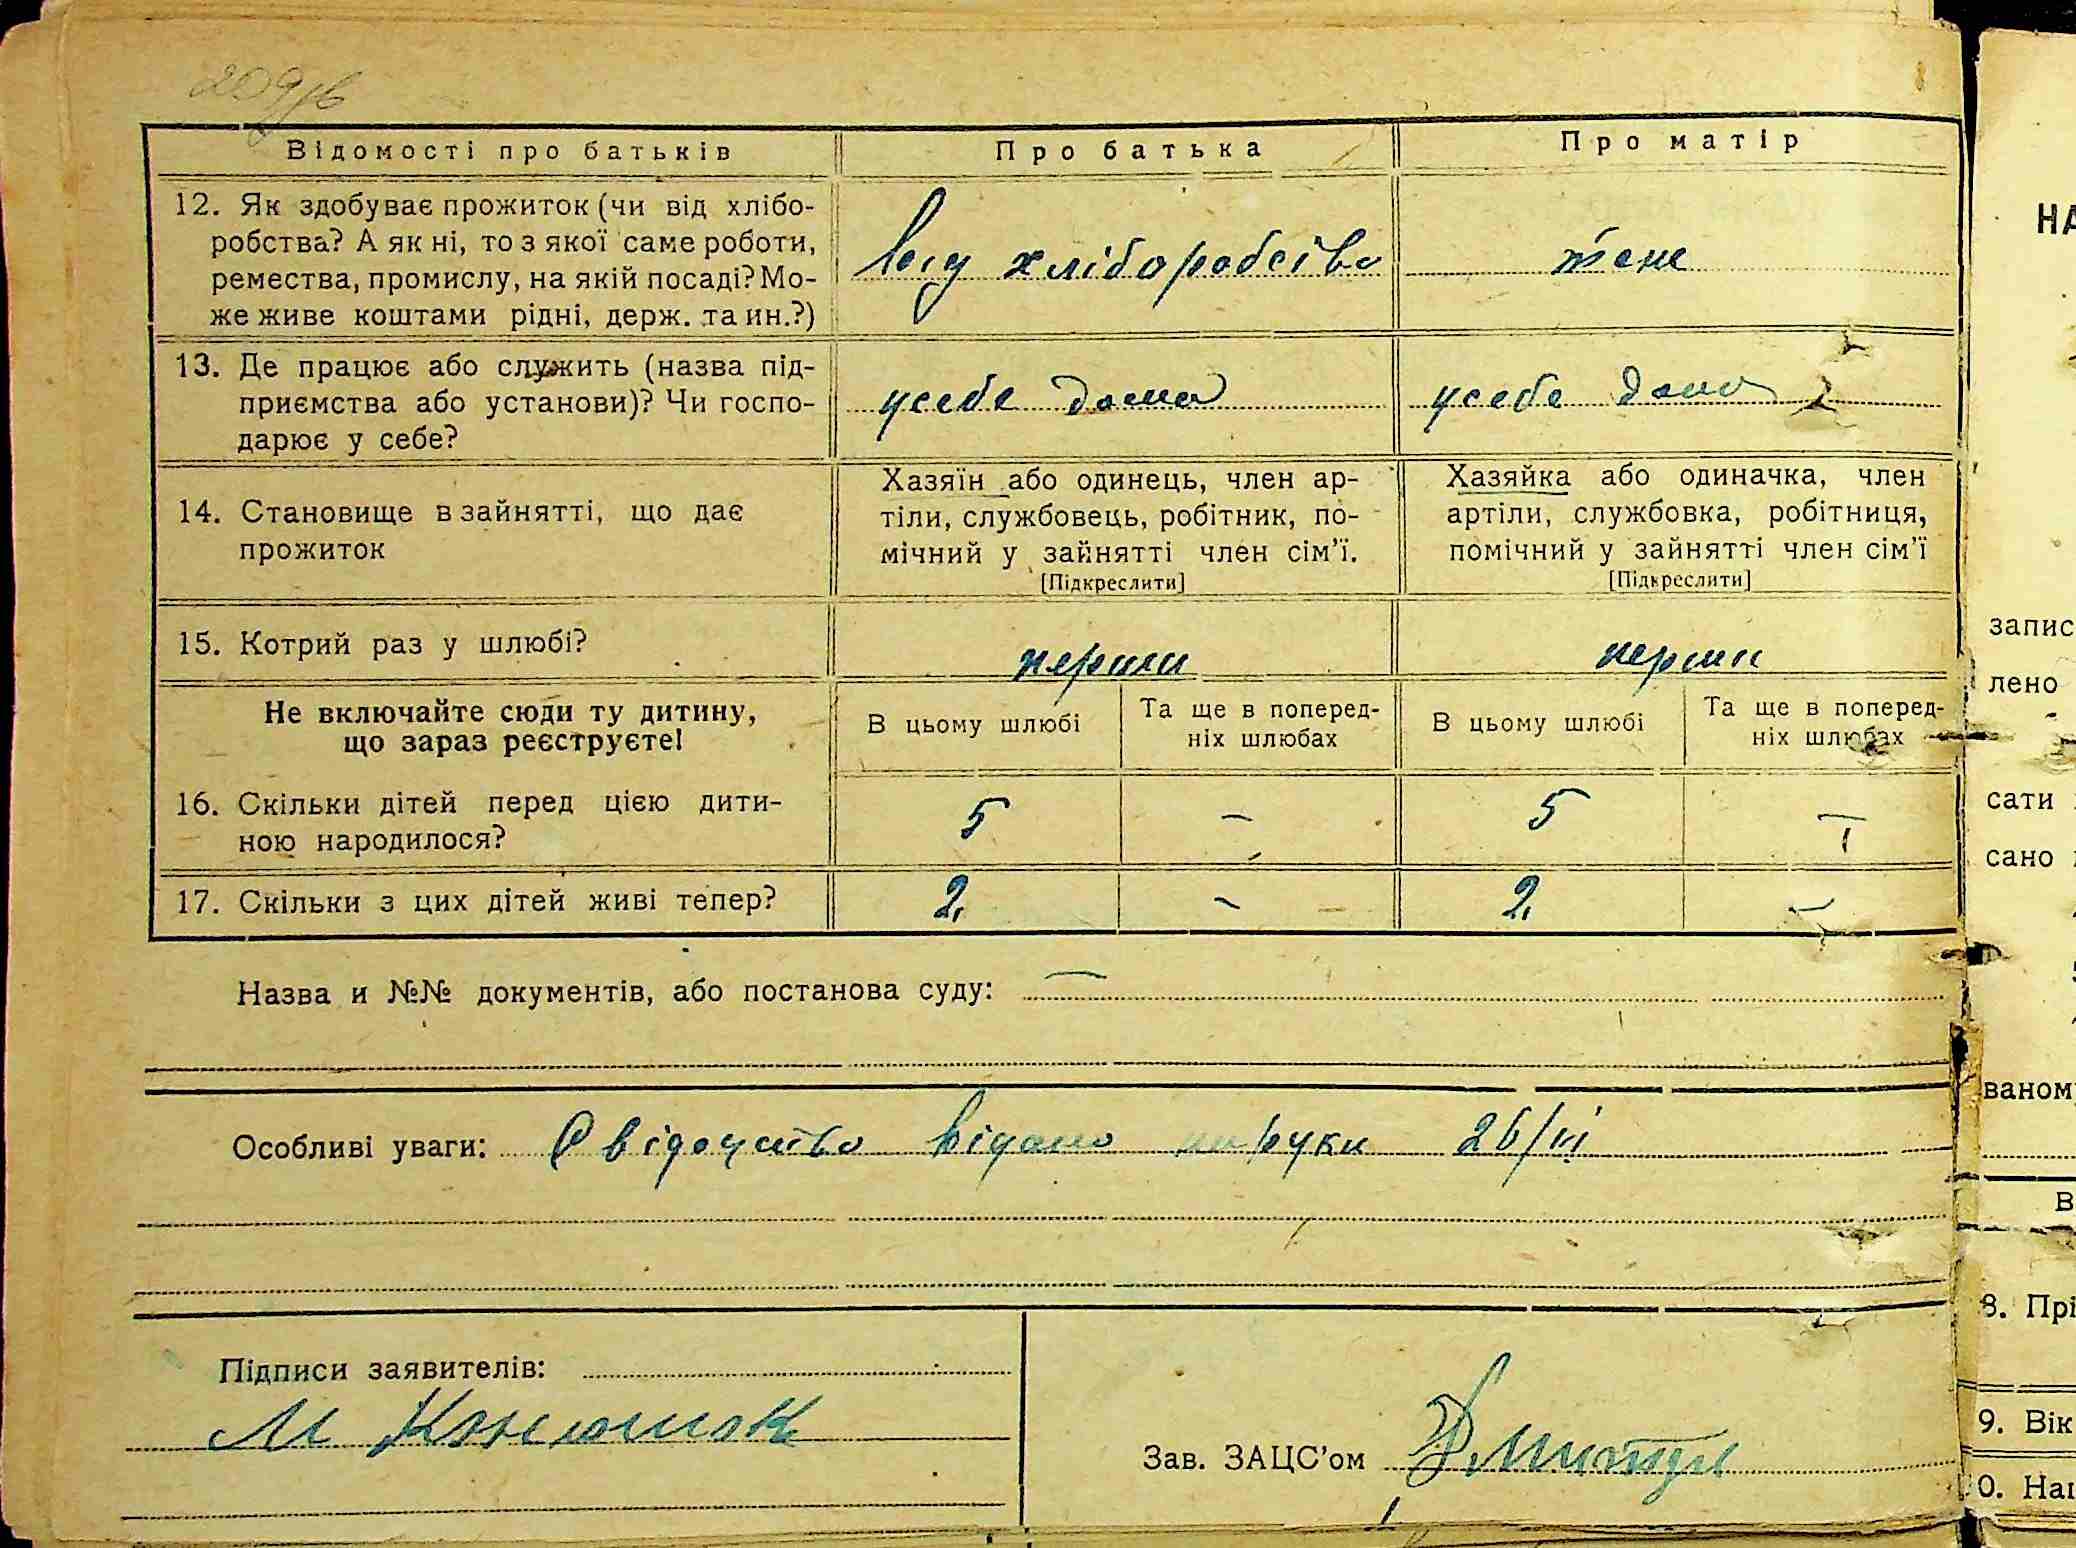 209 зв
Відомості про батьків Про батька Про матір
12. Як здобуває прожиток (чи від хлібо-
робства? А як ні, то з якої саме роботи,
ремества, промислу, на якій посаді? Мо-
же живе коштами рідні, держ. та ин.?)
хліборобство
теж
13. Де працює або служить (назва під-
приємства або установи)? Чи госпо-
дарює у себе?
усебе дома
усебе дома
14. Становище в зайнятті, що дає
прожиток
Хазяїн або одинець, член ар-
тіли, службовець, робітник, по-
мічний у зайнятті член сім’ї.
[Підкреслити]
Хазяйка або одиначка, член
артіли, службовка, робітниця,
помічний у зайнятті член сім’ї
[Підкреслити]
15. Котрий раз у шлюбі?
перши
перши
Не включайте сюди ту дитину,
що зараз реєструєте!
В цьому шлюбі
Та ще в поперед-
ніх шлюбах
В цьому шлюбі
Та ще в поперед-
ніх шлюбах
16. Скільки дітей перед цією дити-
ною народилося?
5 – 5 –
17. Скільки з цих дітей живі тепер?
2 – 2 –
Назва и №№ документів, або постанова суду: —
Особливі уваги: Свідоцтво видано на руки 26/III
Підписи заявителів:
М
Зав. ЗАЦС’ом
НА
запис
лено
сати
сано
ваном
В
8. Прі
9. Вік
0. Наг